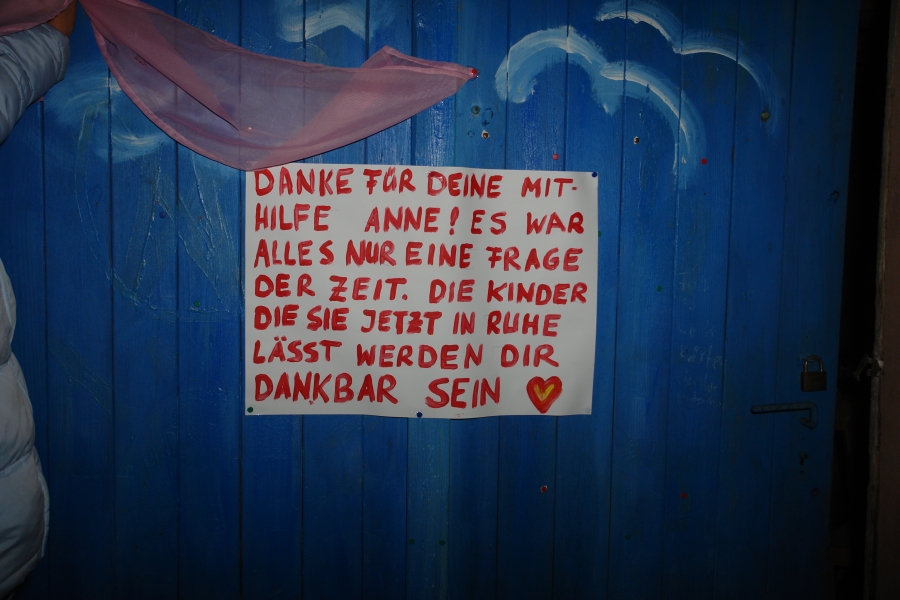 DANKE FÜR DEINE MIT-
HILFE ANNE! ES WAR
ALLES NUR EINE FRAGE
DER ZEIT. DIE KINDER
DIE SIE JETZT IN RUHE
LÄSST WERDEN DIR
DANKBAR SEIN